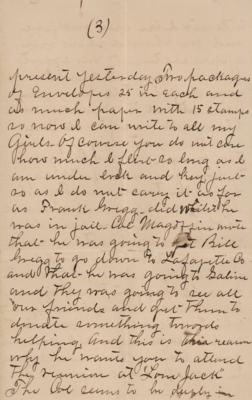 (3)
present yesterday, Two packages
of Envelopes 25 in each and
as much paper with 15 stamps
so now I can write to all my
Girls. Of course you do not care
how much I flirt so long as I
am under lock and key just
so as I do not carry it as far
as Frank Gregg did while he
was in jail. Col Magoffin wrote
that he was going to Bill
Gregg to go down to Lafayette Co
and that he was going to Saline
and they was going to see all
our friends and get them to
donate something towords
helping, and this is the reason
why he wants you to attend
the reunion at Lone Jack
The Col seems to be deeply in